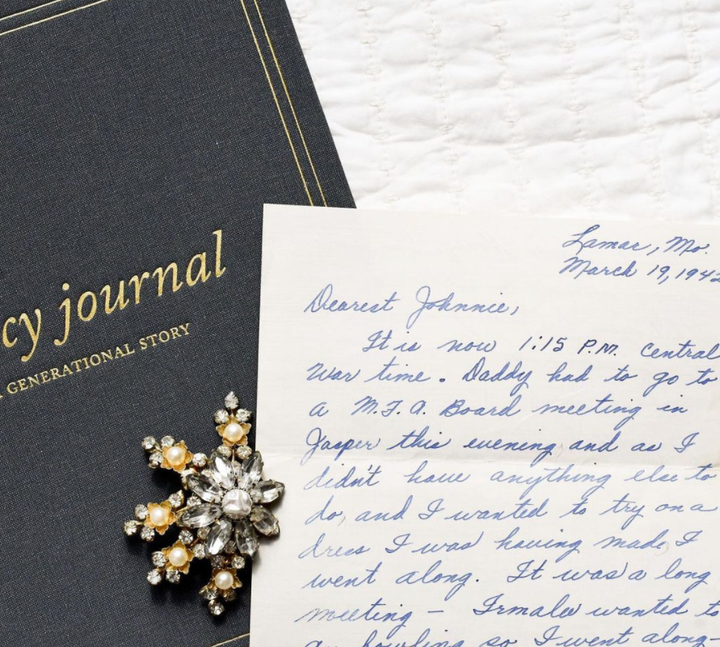 cy journal
A GENERATIONAL STORY
Lamar, Mo.
March 19, 1942
Dearest Johnnie,
It is now 1:15 P.M. Central
War time. Daddy had to go to
a M.F.A. Board meeting in
Jasper this evening and as I
didn't have anything else to
do, and I wanted to try on a
dress I was having made, I
went along. It was a long
meeting – Irmalee wanted to
go bowling so I went along-